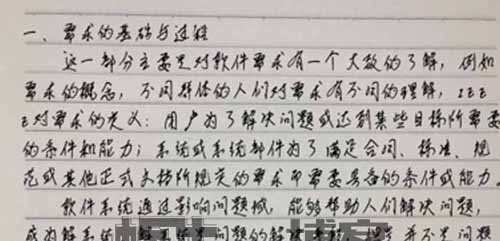 一、需求的基础与过程
这一部分主要是对软件需求有一个大致的了解,例如
需求的概念,不同群体的人们对需求有不同的理解,IEE
E对需求的定义:用户为了解决问题或达到某些目标所需要
的条件和能力;系统或系统部件为了满足合同、标准、规
范或其他正式文档所规定的要求而需要具备的条件或能力。
软件系统通过影响问题域,能够帮助人们解决问题,
成为解系统